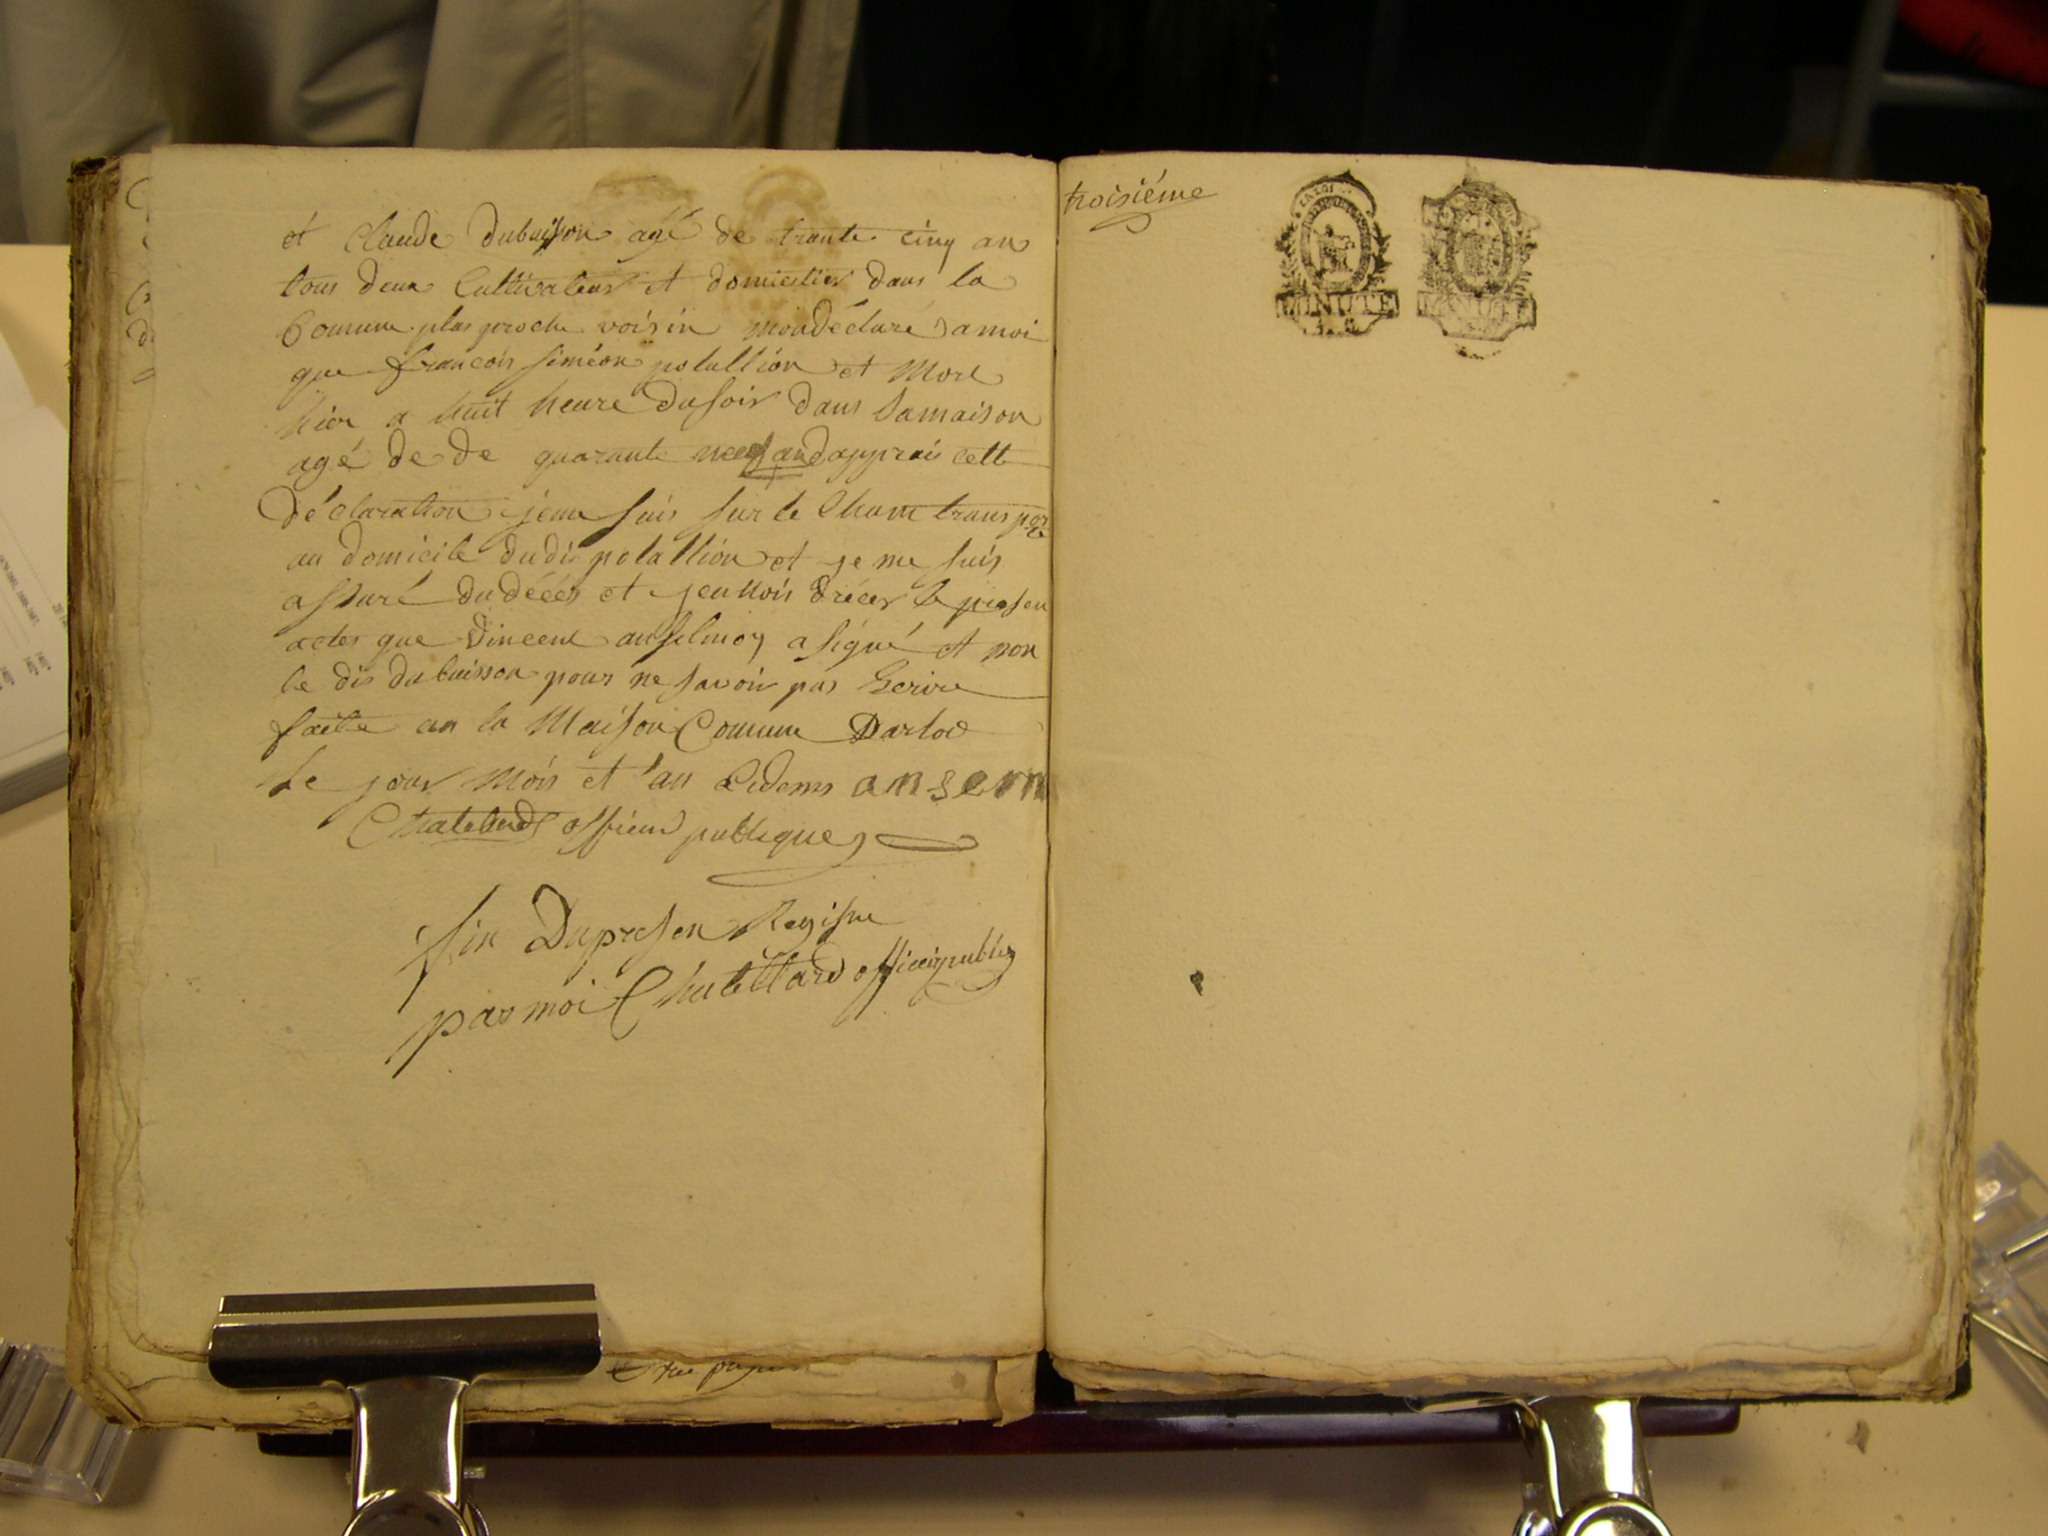 et Claude dubuisson agé de trante cinq ans
tous deux Cultivateur et domicilies dans la
Comune plus proche voisin mondéclaré a moi
que francois siméon polallion et Mort
hier a huit heure du soir dans sa maison
agé de de quarante neuf and apprais cette
déclaration je me suis sur le Cham transporté
au domicile dudis polallion et je me suis
assuré du décés et jen nois drécer le presen
actes que Vincent anselme a signé et non
le dis dubuisson pour ne savoir pas Ecrire
faitte an la Maison Comune Darlod
Le jour Mois et l'an Cidesus anselm
Chatelard officier publique
fin Dupresen Registre
par moi Chatellard officier public
troisiéme
LA LOI
MINUTE
MINUTE